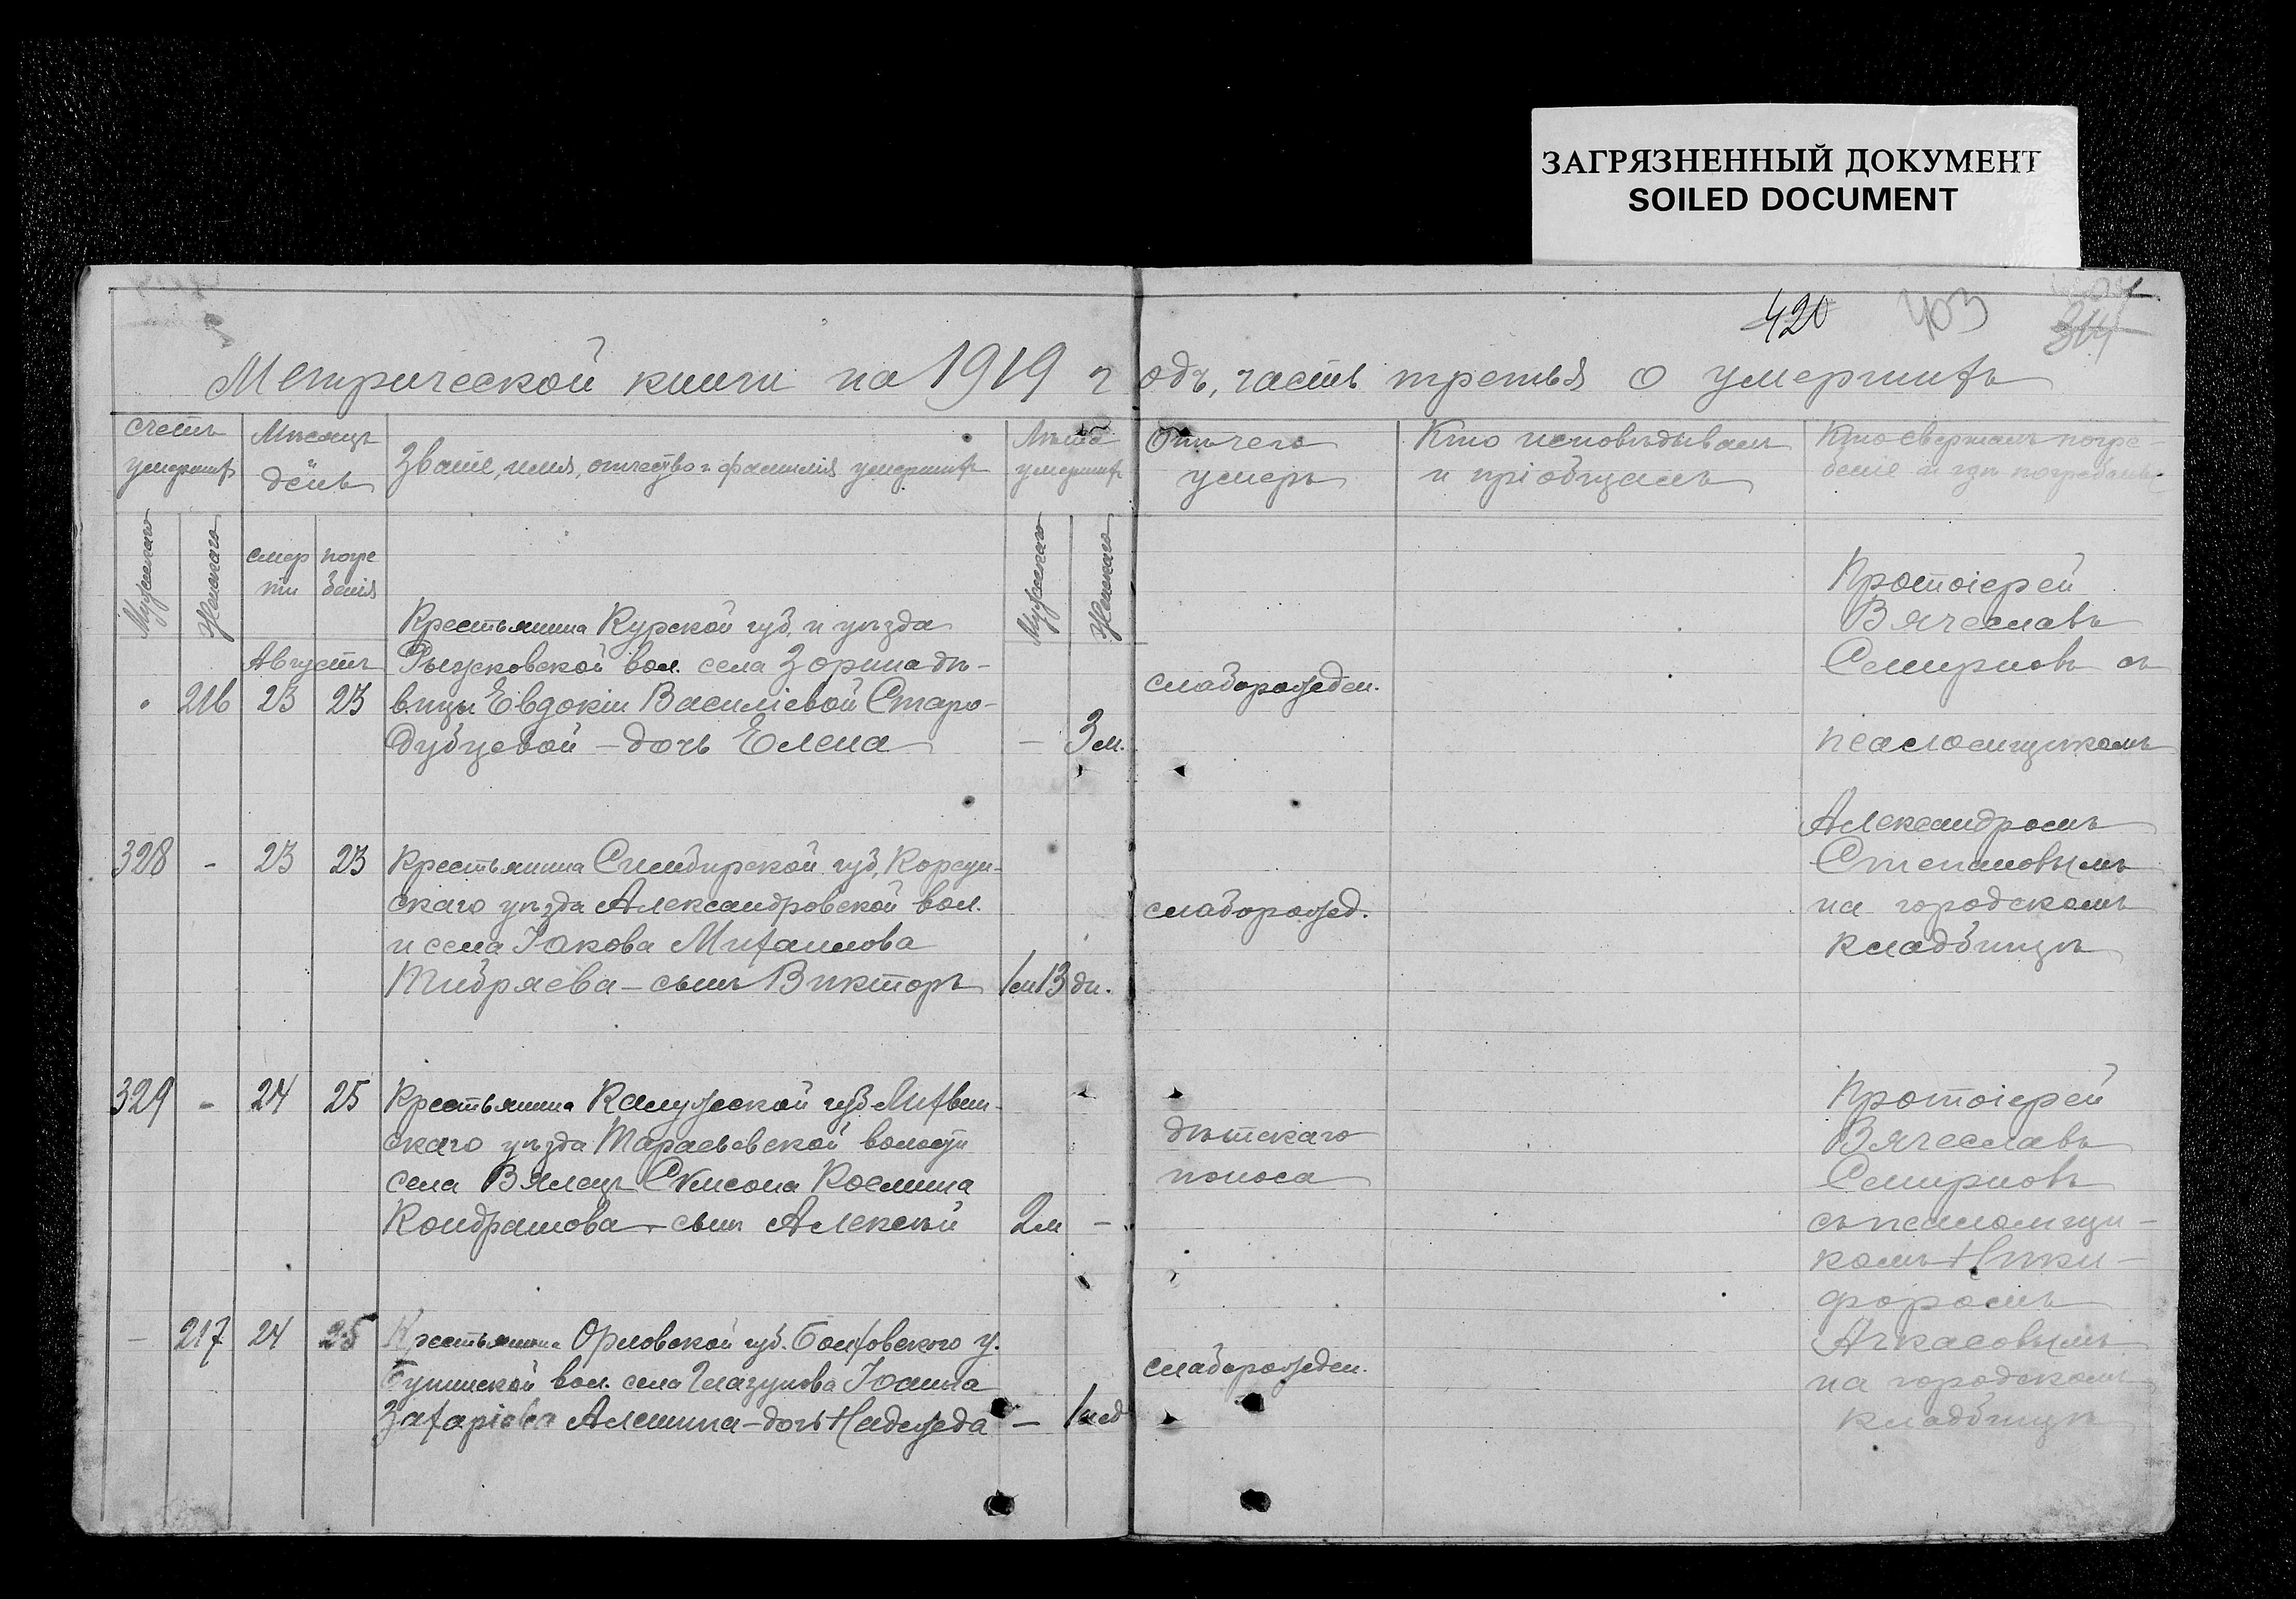 ЗАГРЯЗНЕННЫЙ ДОКУМЕНТ
SOILED DOCUMENT
420 403 314
Метрической книги на 1919 годъ, часть третья о умершихъ
счетъ умершихъ
Мѣсяцъ день
Званіе, имя, отчество и фамилія умершихъ
Лѣта умершихъ
Отъ чего умеръ
Кто исповѣдывалъ и пріобщалъ
Кто свершалъ погребеніе и гдѣ погребены
Мужескаго
Женскаго
смерти
погребенія
Мужескаго
Женскаго
Августъ
216 23 23
Крестьянина Курской губ. и уѣзда
Рышковской вол. села Зорина дѣ-
вицы Евдокіи Василіевой Старо-
дубцевой – дочь Елена
– 3 м.
слаборожден.
Протоіерей
Вячеславъ
Смирновъ съ
псаломщикомъ
Александромъ
Степановымъ
на городскомъ
кладбищѣ
328 - 23 23
Крестьянина Симбирской губ. Корсун-
скаго уѣзда Александровской вол.
и села Іакова Михаилова
Тибряева – сынъ Викторъ
1 м 13 дн.
слаборожд.
329 - 24 25
Крестьянина Калужской губ. Лихвин-
скаго уѣзда Тарасьевской волости
села Вялецъ Косьмина
Кондрашова – сынъ Алексѣй
2 м –
дѣтскаго
поноса
Протоіерей
Вячеславъ
Смирновъ
съ псаломщи-
комъ Ники-
форомъ
Аркасовымъ
на городскомъ
кладбищѣ
– 217 24 25
Крестьянина Орловской губ. Болховского у.
вол. села Глазунова Іоанна
Захаріева Алешина – дочь Надежда
– 1 нед
слаборожден.